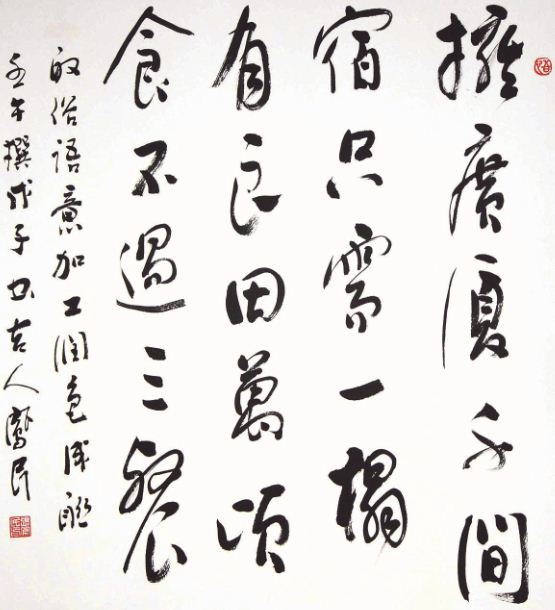 擁廣廈千間
宿只需一榻
有良田萬頃
食不過三餐
取俗語意加工潤色成聯
壬午撰戊子書吉人民